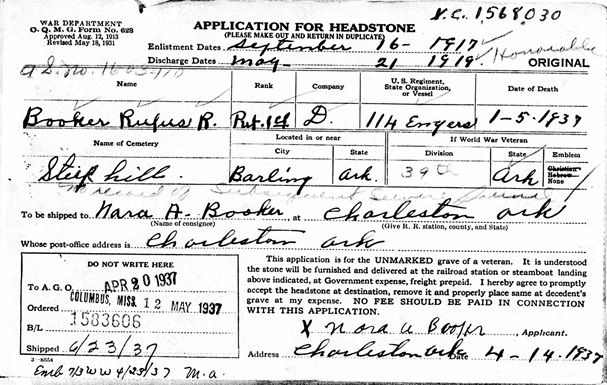 V.C. 1568030
WAR DEPARTMENT
O. Q. M. G. Form No. 628
Approved Aug. 12, 1913
Revised May 18, 1931
APPLICATION FOR HEADSTONE
(PLEASE MAKE OUT AND RETURN IN DUPLICATE)
Enlistment Dates September 16- 1917
Discharge Dates May- 21 1919 Honorable ORIGINAL
Name Rank Company U. S. Regiment, State Organization, or Vessel Date of Death
Booker Rufus R. Pvt. 1cl D. 114 Engers 1-5-1937
Name of Cemetery Located in or near If World War Veteran
City State Division State Emblem
Steep hill Barling Ark. 39th Ark Christian Hebrew None
To be shipped to Nara A- Booker, at Charleston Ark
(Name of consignee) (Give R. R. station, county, and State)
Whose post-office address is Charleston Ark
DO NOT WRITE HERE
To A. G. O. APR 20 1937
COLUMBUS, MISS. 12 MAY 1937
Ordered
1583606
B/L
Shipped 6/23/37
3-8654
This application is for the UNMARKED grave of a veteran. It is understood
the stone will be furnished and delivered at the railroad station or steamboat landing
above indicated, at Government expense, freight prepaid. I hereby agree to promptly
accept the headstone at destination, remove it and properly place same at decedent's
grave at my expense. NO FEE SHOULD BE PAID IN CONNECTION
WITH THIS APPLICATION.
X Nora A Booker, Applicant.
Address Charleston Ark Date 4-14-1937